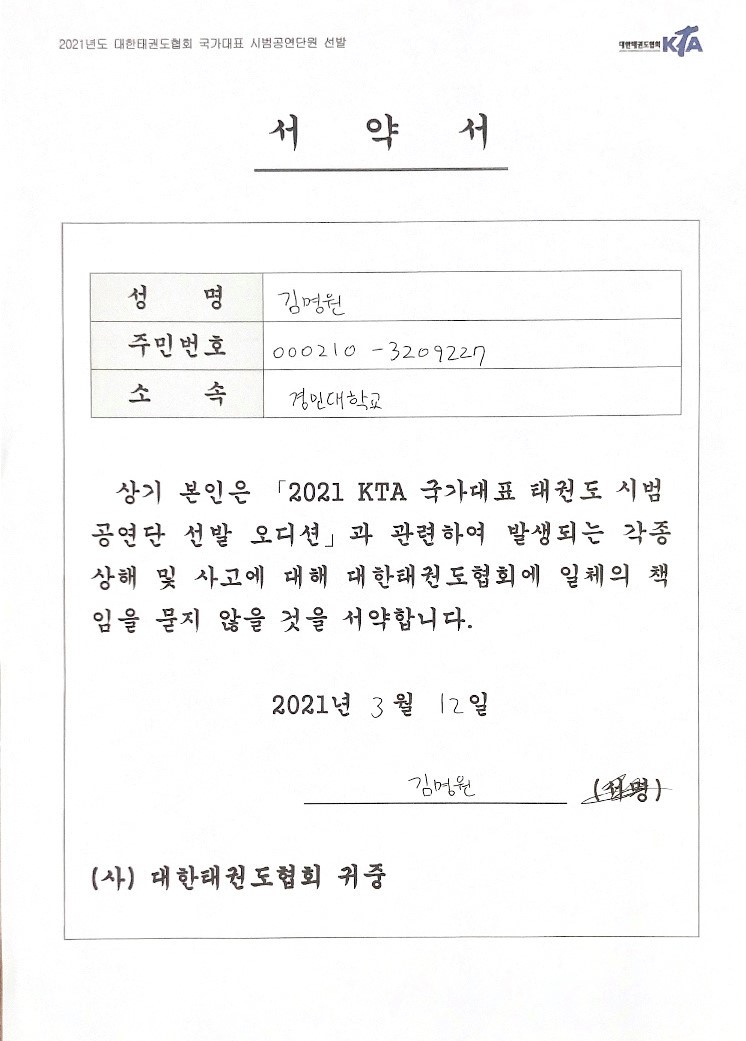 2021년도 대한태권도협회 국가대표 시범공연단원 선발
대한태권도협회 KTA
서 약 서
성 명 김명원
주민번호 000210-3209227
소 속 경민대학교
상기 본인은 「2021 KTA 국가대표 태권도 시범
공연단 선발 오디션」과 관련하여 발생되는 각종
상해 및 사고에 대해 대한태권도협회에 일체의 책
임을 묻지 않을 것을 서약합니다.
2021년 3월 12일
김명원 (서명)
(사) 대한태권도협회 귀중